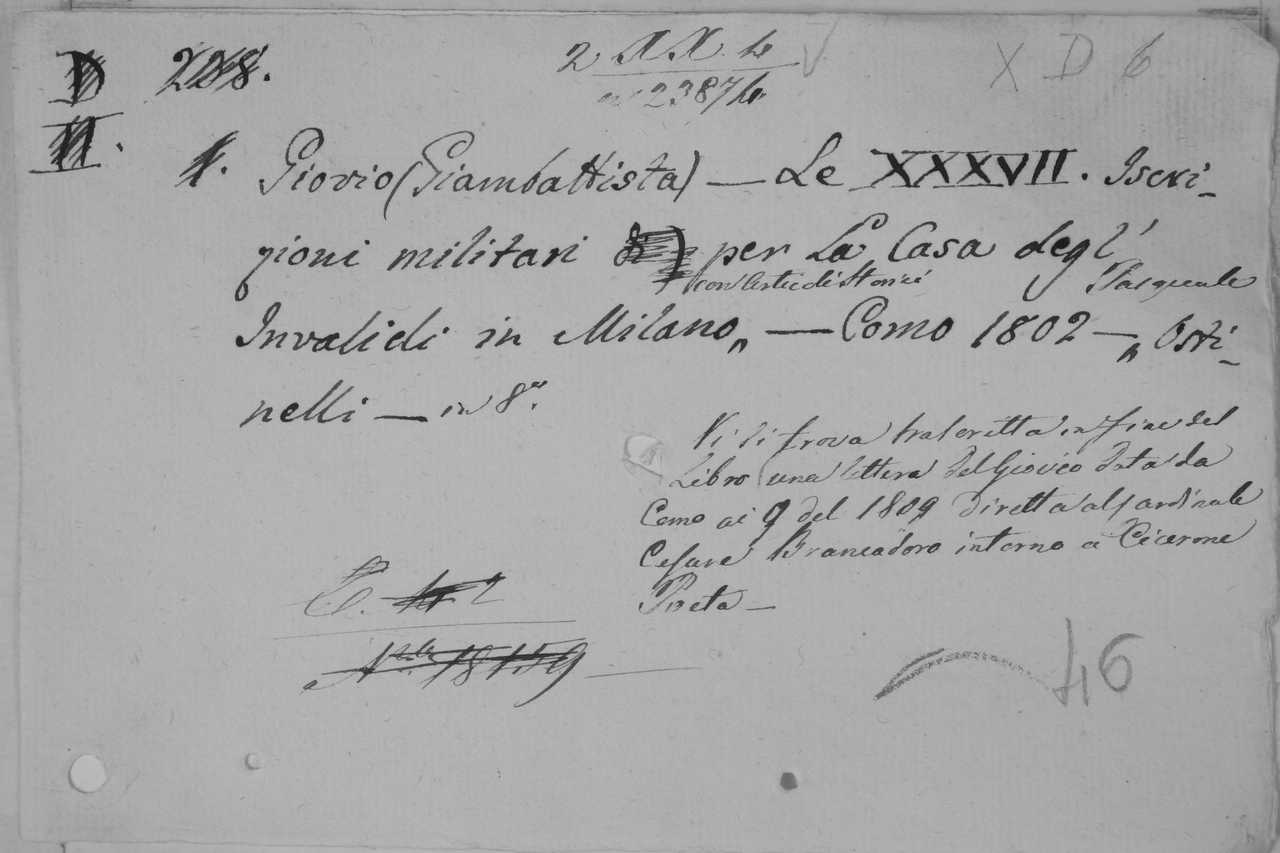 D 228.
2 XX. 4
2387/4.
X D 6
II.
1. Giovio (Giambattista) — Le XXXVII. Iscri-
zioni militari per La Casa degl'
con Articoli Storici Pasquale
Invalidi in Milano„ — Como 1802 —„ Osti-
nelli — in 8°.
Vi si trova trascritta in fine del
Libro una lettera del Giovio data da
Como ai 9 del 1809 diretta al Cardinale
Cesare Brancadoro intorno a Cicerone
Poeta —
2
18159
46